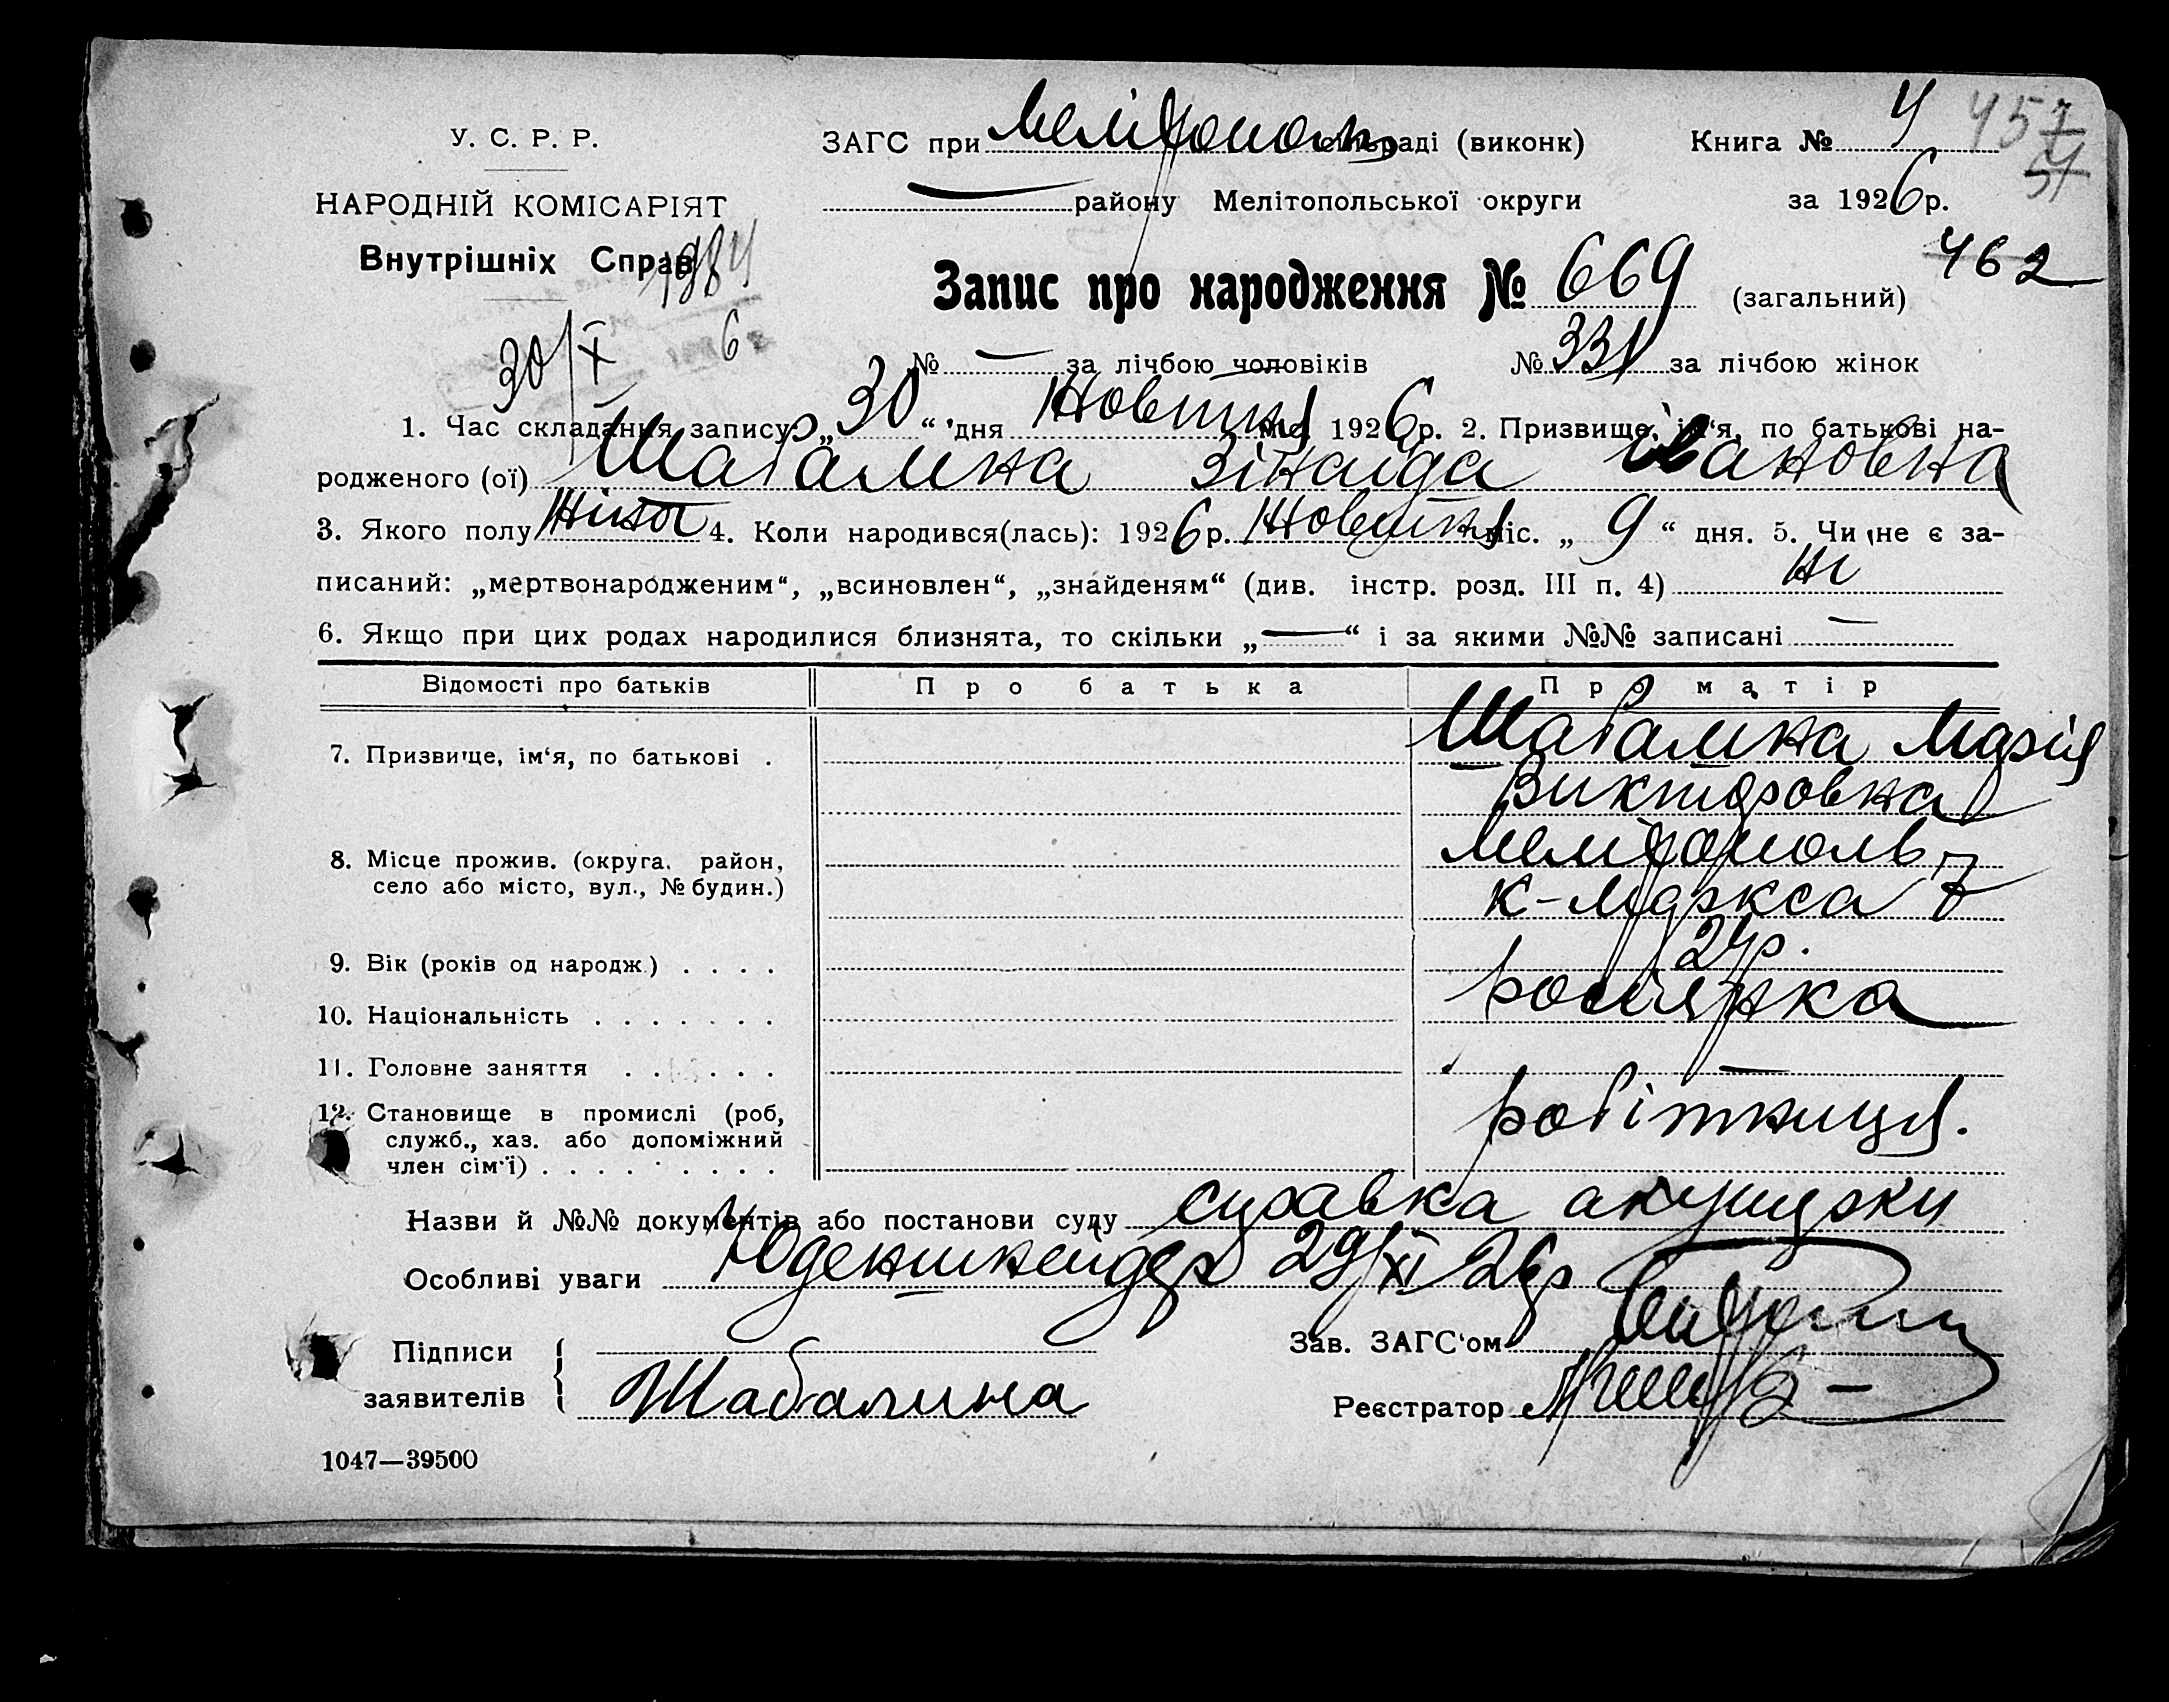 У. С. Р. Р.
НАРОДНІЙ КОМІСАРІЯТ
Внутрішніх Справ
ЗАГС при Мелітополь сільраді (виконк)
Книга № 4
457
району Мелітопольської округи
за 1926 р.
462
1984
Запис про народження № 669 (загальний)
30/X 6
№ — за лічбою чоловіків № 331 за лічбою жінок
1. Час складання запису: „30“ дня Жовтня міс. 1926 р. 2. Призвище, ім‘я, по батькові на-
родженого (ої) Шабаліна Зінаіда Івановна
3. Якого полу Жіноч 4. Коли народився(лась): 1926 р. Жовтня міс. „9“ дня. 5. Чи не є за-
писаний: „мертвонародженим“, „всиновлен“, „знайденям“ (див. інстр. розд. III п. 4) ні
6. Якщо при цих родах народилися близнята, то скільки „—“ і за якими №№ записані —
Відомості про батьків Про батька Про матір
7. Призвище, ім‘я, по батькові . Шабаліна Марія
Викторовна
8. Місце прожив. (округа, район, Мелітополь
село або місто, вул., № будин.) К-Маркса 7
9. Вік (років од народж.) . . . . 24 р.
10. Національність . . . . . . . росіянка
11. Головне заняття . . . . . . —
12. Становище в промислі (роб, робітниця.
служб., хаз. або допоміжний
член сім‘ї) . . . . . . . . .
Назви й №№ документів або постанови суду справка акушерки
Особливі уваги 29/XI 26р
Підписи
заявителів
Шабалина
Зав. ЗАГС‘ом
Реєстратор
1047—39500